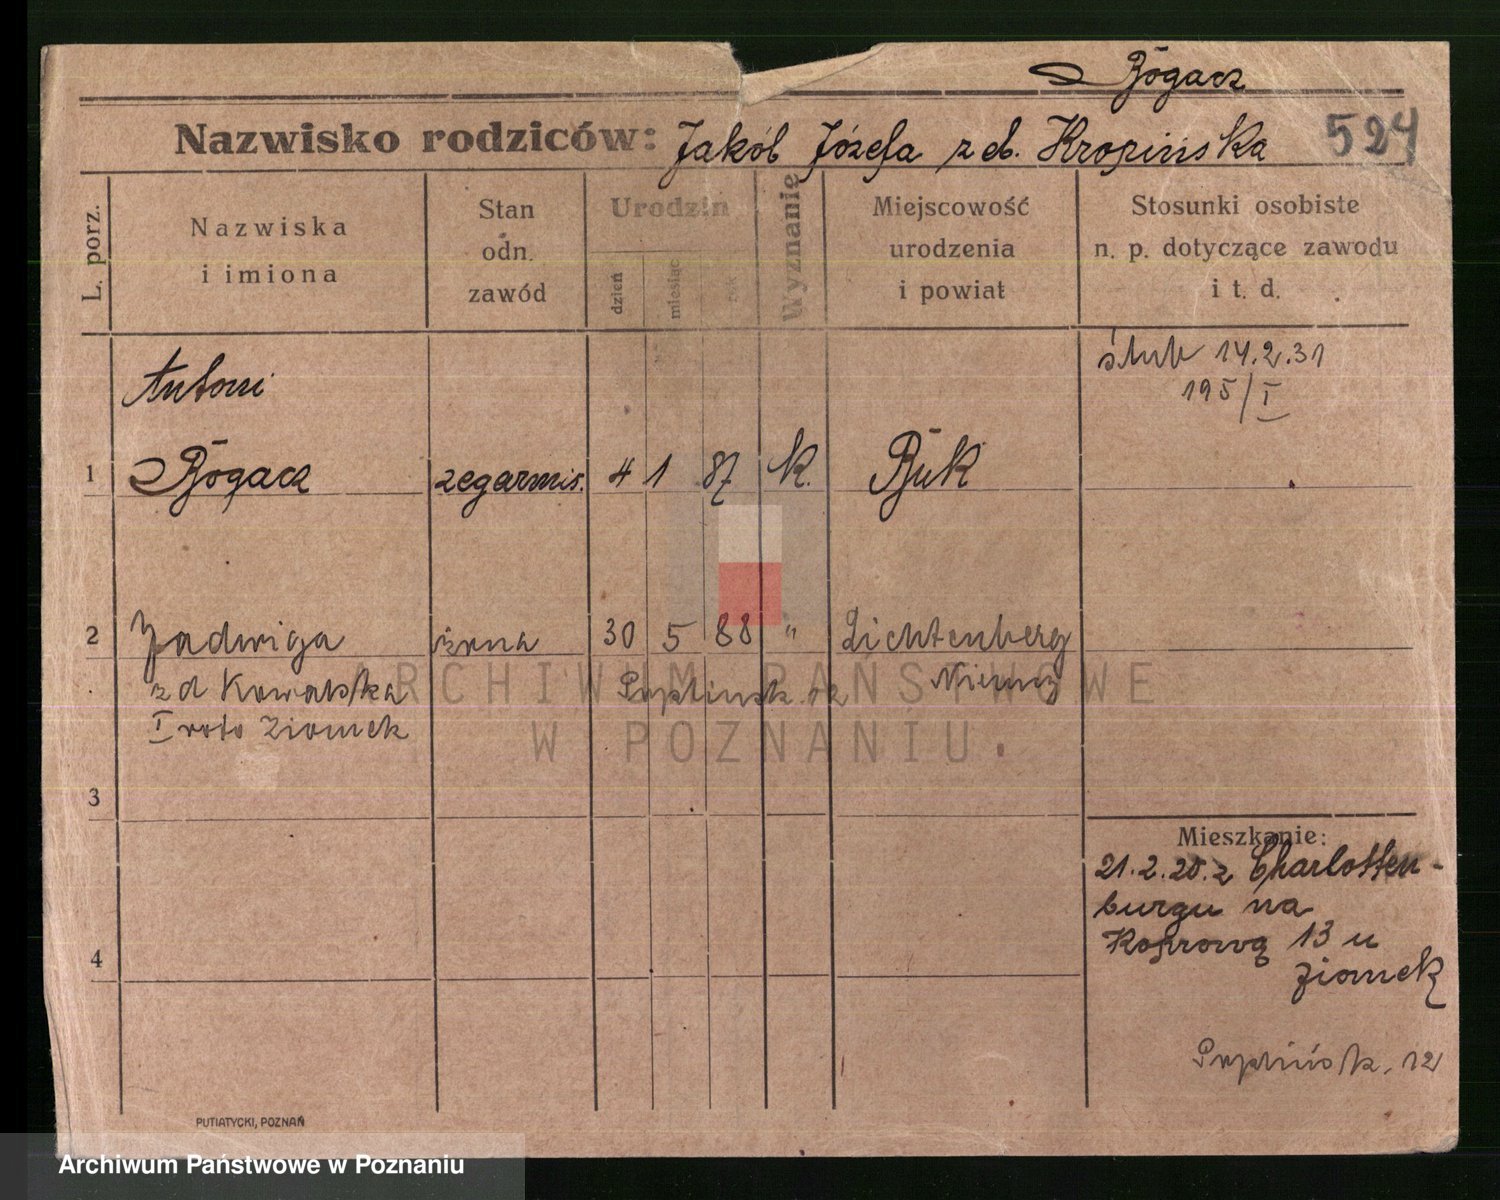 Bogacz
Nazwisko rodziców: Jakób Józefa z d. Kropińska 524
L. porz.
Nazwiska i imiona
Stan odn. zawód
Urodzin
dzień
miesiąc
rok
Wyznanie
Miejscowość urodzenia i powiat
Stosunki osobiste n. p. dotyczące zawodu i t. d.
ślub 14.2.31
195/I
Antoni
1 Bogacz zegarmis. 4 1 87 k. Buk
2 Jadwiga żona 30 5 88 " Lichtenberg
z d Kowalska 12 Niemcy
I voto Ziomek
3
4
Mieszkanie:
21.2.20. z Charlotten-
burgu na
13 u
Ziomek
12
PUTIATYCKI, POZNAŃ
ARCHIWUM PAŃSTWOWE
W POZNANIU
Archiwum Państwowe w Poznaniu